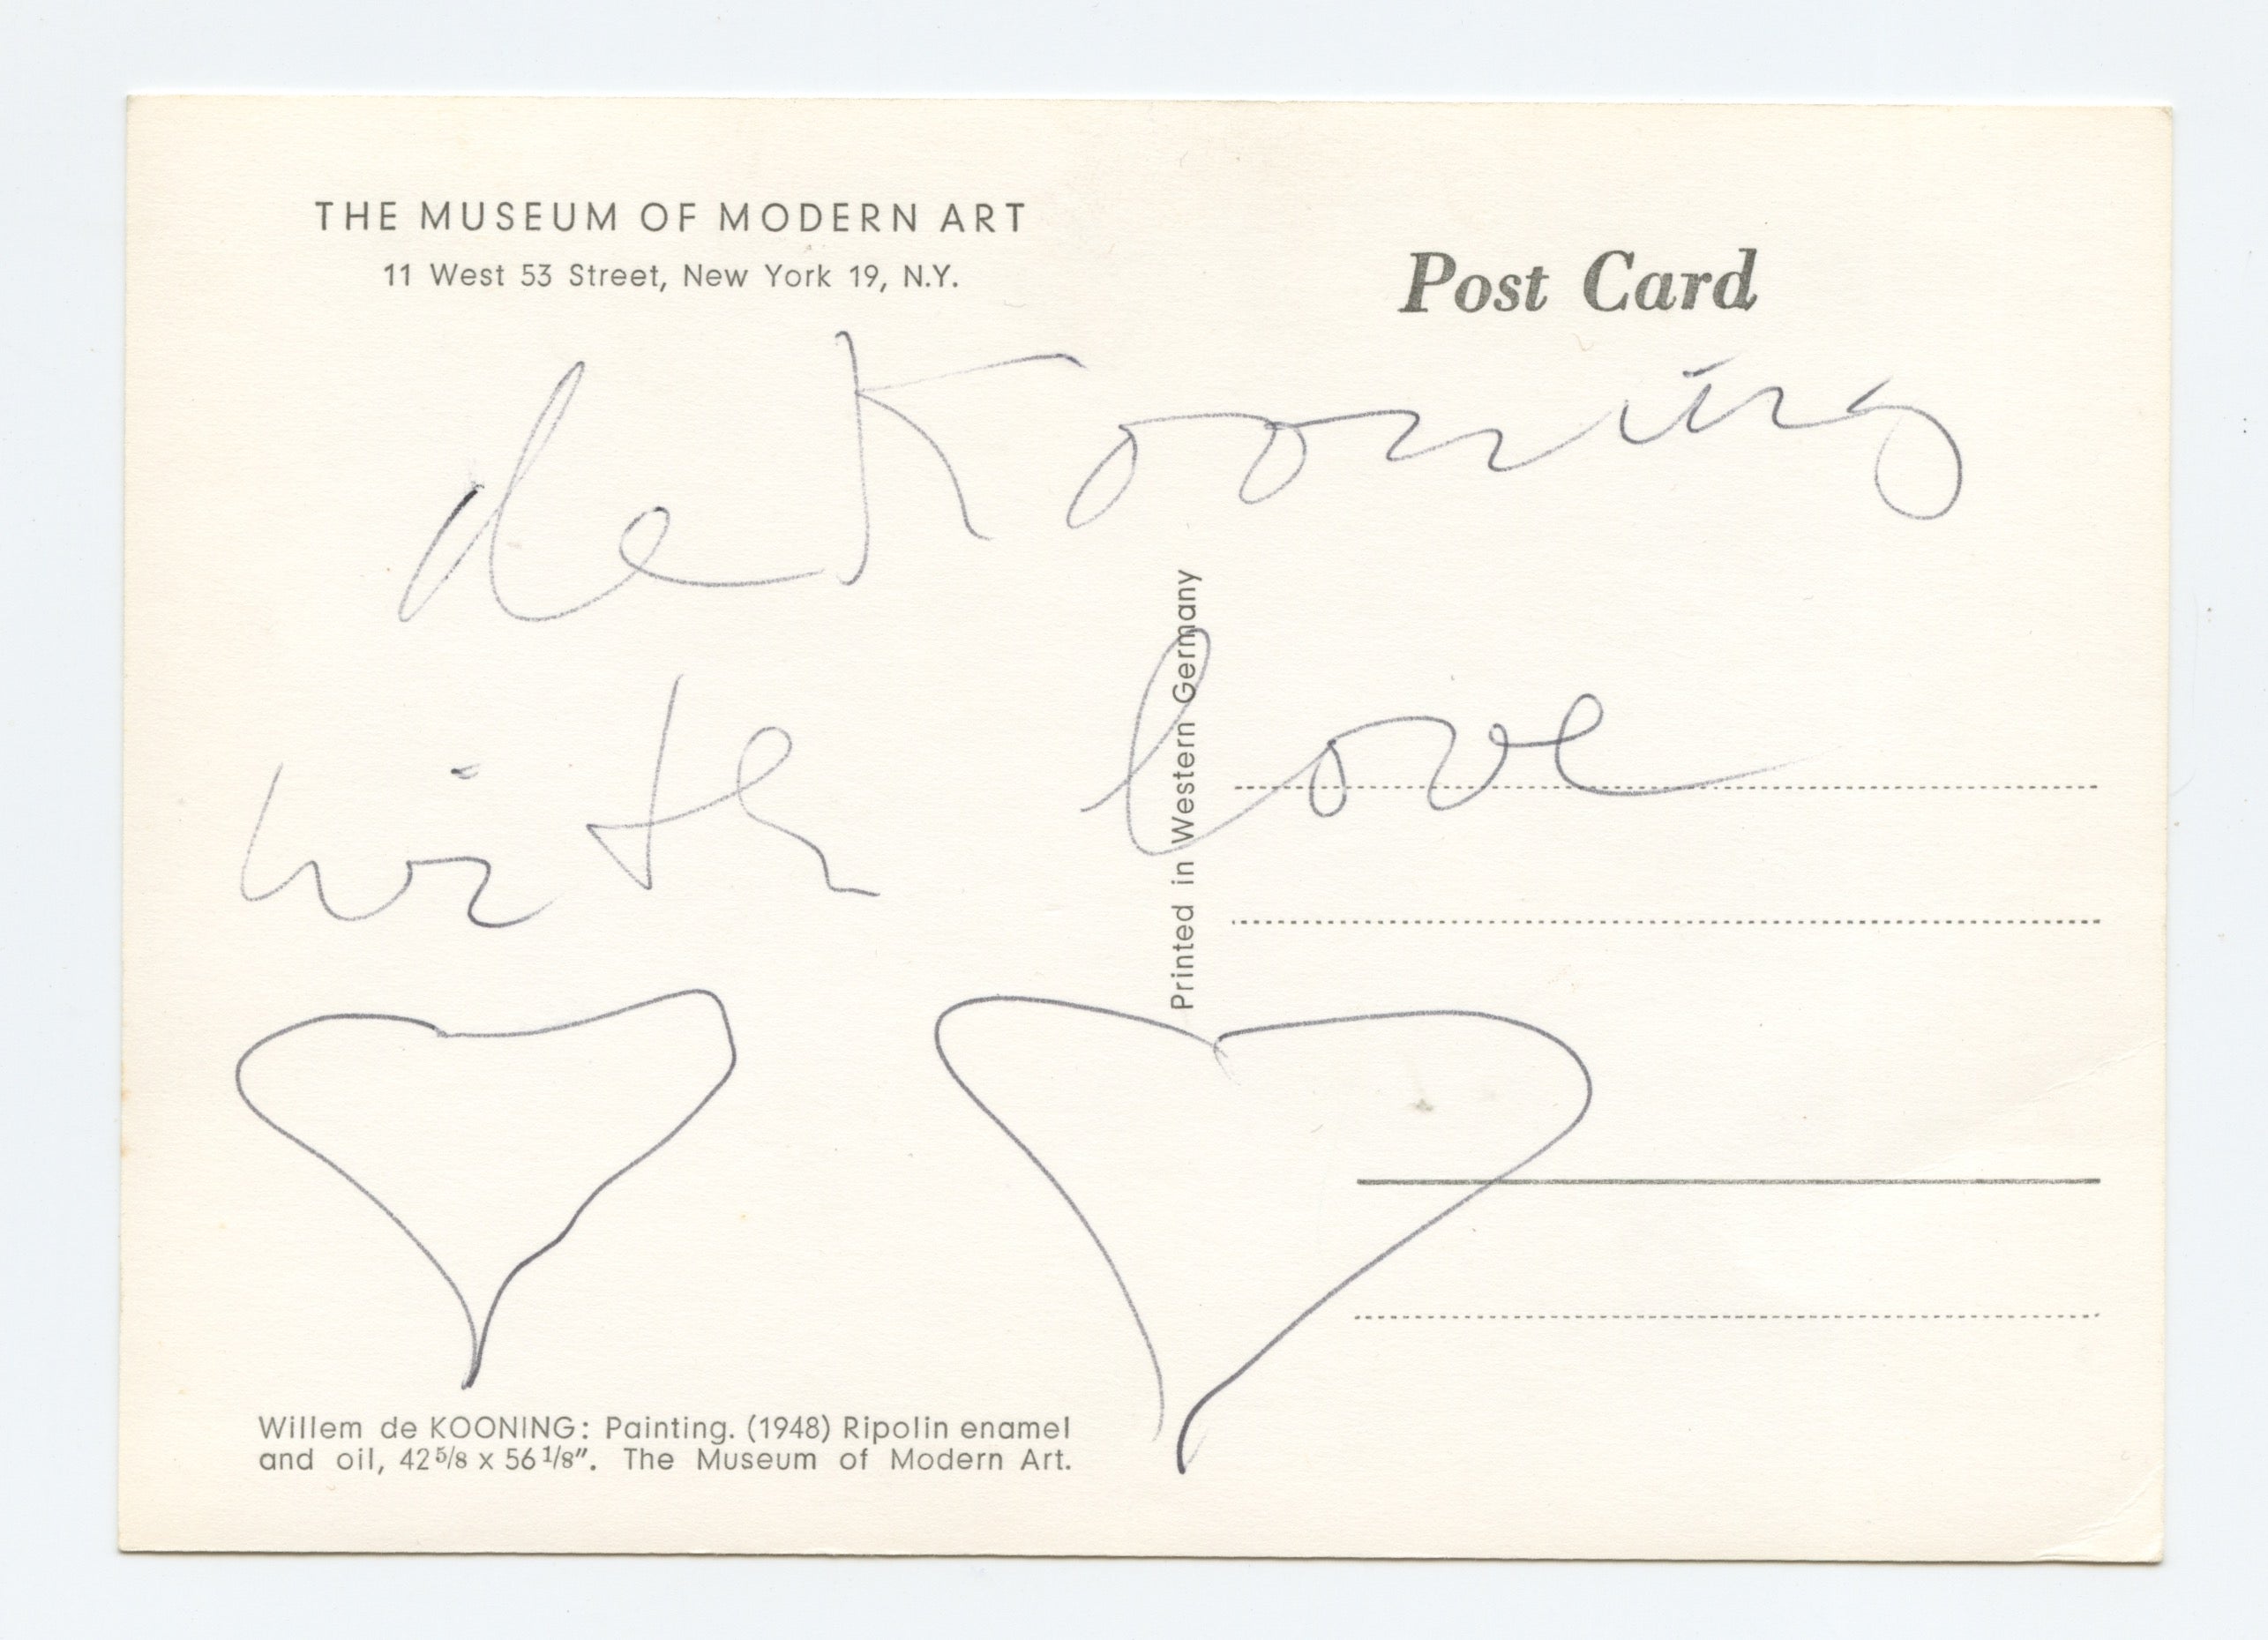 THE MUSEUM OF MODERN ART
11 West 53 Street, New York 19, N.Y.
Post Card
de Kooning
with love
Printed in Western Germany
Willem de KOONING: Painting. (1948) Ripolin enamel
and oil, 42 5/8 x 56 1/8". The Museum of Modern Art.